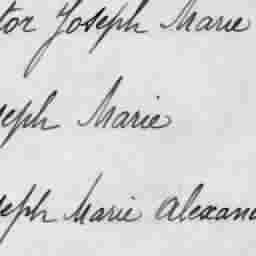 tor Joseph Marie
seph Marie
seph Marie Alexan